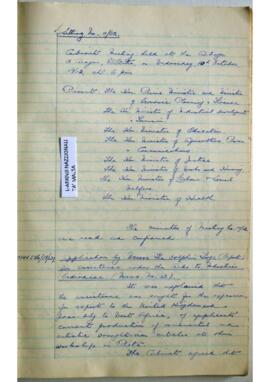 Sitting No. 11/62.
Cabinet Meeting held at the Auberge
d'Aragon, Valletta on Wednesday 10th October
1962 at 6 p.m.
Present: The Hon. Prime Minister and Minister
of Economic Planning & Finance
The Hon. Minister of Industrial Development
& Tourism
The Hon. Minister of Education
The Hon. Minister of Agriculture, Power
& Communications
The Hon. Minister of Justice
The Hon. Minister of Works and Housing
The Hon. Minister of Labour & Social
Welfare
The Hon. Minister of Health
L-ARKIVJ NAZZJONALI
TA' MALTA
The minutes of Meeting No. 10/62
were read and confirmed
Application by Messrs The Dolphin Lamps
for assistance under the Aids to Industries
Ordinance
It was explained that
the assistance was sought for the expansion,
for export to the United Kingdom and
possibly to North Africa, of applicants'
current production of ornamental and
artistic
workshop in
The Cabinet agreed that